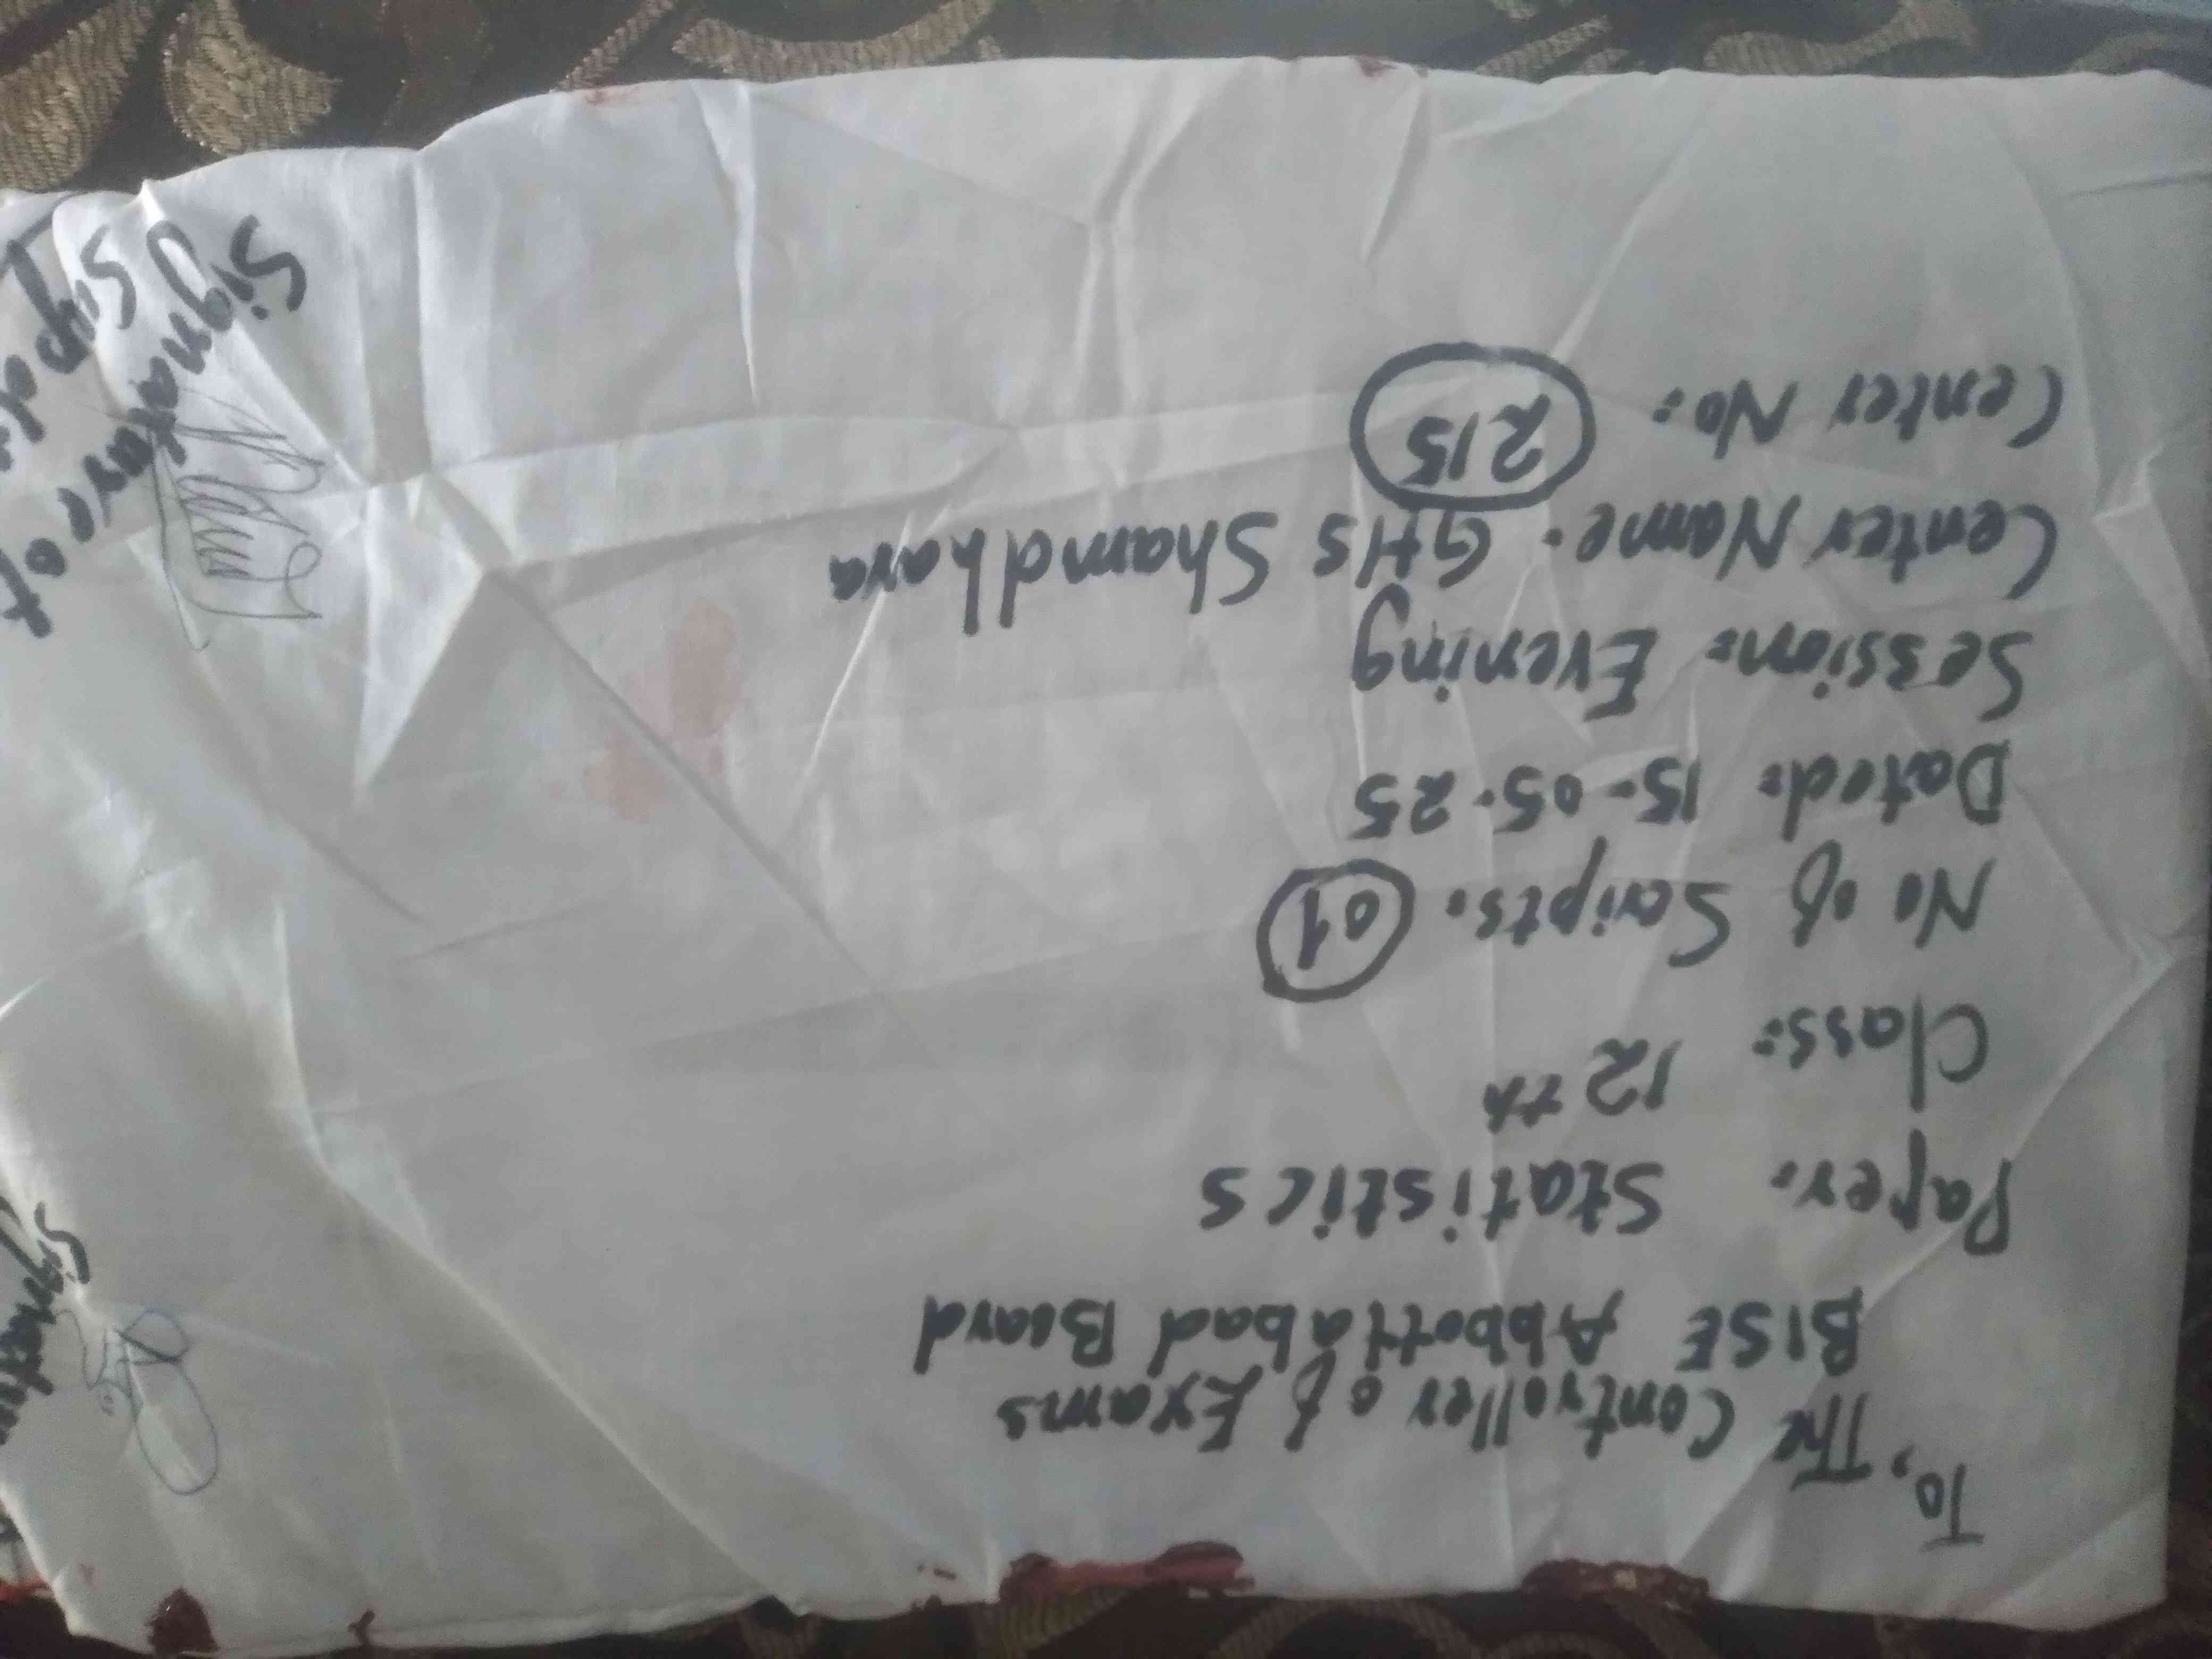 To, The Controller of Exams
BISE Abbottabad Board
Paper: Statistics
Class: 12th
No of Scripts: 01
Dated: 15-05-25
Session: Evening
Center Name: GHS Shamdhara
Center No: 215
Signature of
Supdt: